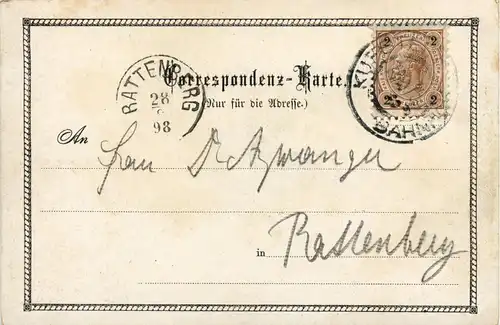 Correspondenz-Karte.
(Nur für die Adresse.)
RATTENBERG
28
98
2 2
2 2
KUF
BAHN
An
Frau
in Rattenberg